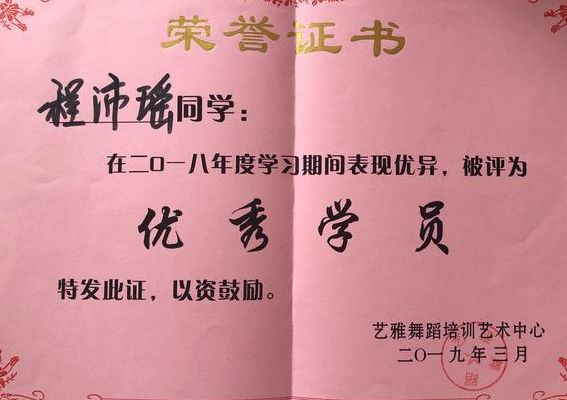 荣誉证书
程沛瑶同学：
在二〇一八年度学习期间表现优异，被评为
优秀学员
特发此证，以资鼓励。
艺雅舞蹈培训艺术中心
二〇一九年三月